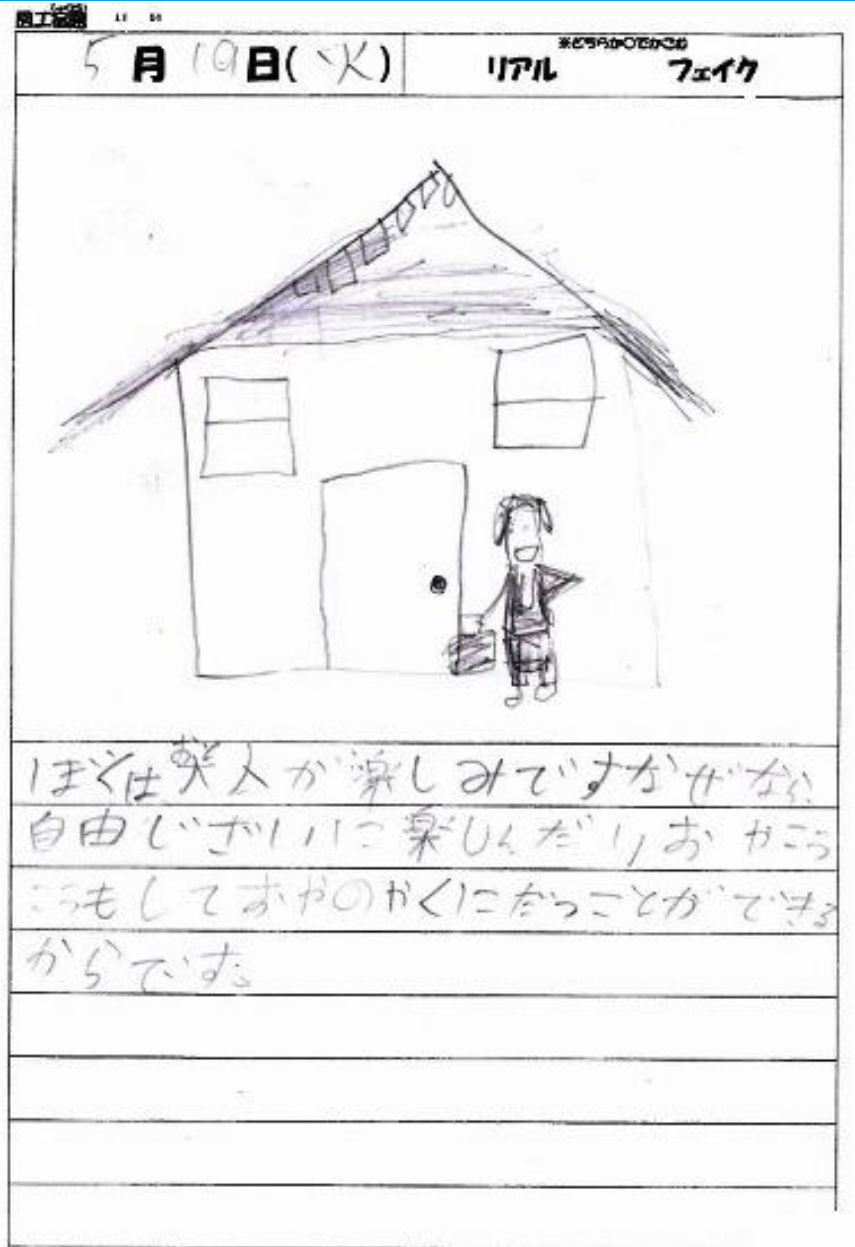 図工宿題
5月19日(火)
※どちらか○でかこむ
リアル フェイク
ぼくは大人が楽しみですなぜなら、
自由じざいに楽しんだりおやこう
こうもしておやのやくにだつことができる
からです。